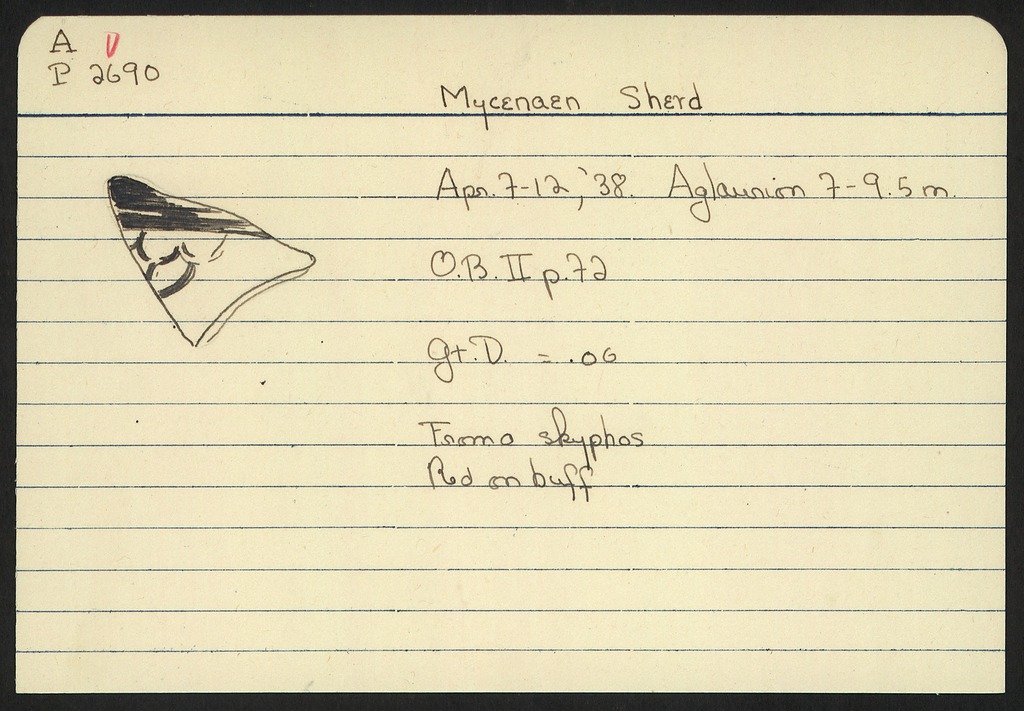 A V
P 2690
Mycenaen Sherd
Apr. 7-12, '38. Aglaurion 7-9.5 m.
O.B. II p.72
gt. D. = .06
From a skyphos
Red on buff